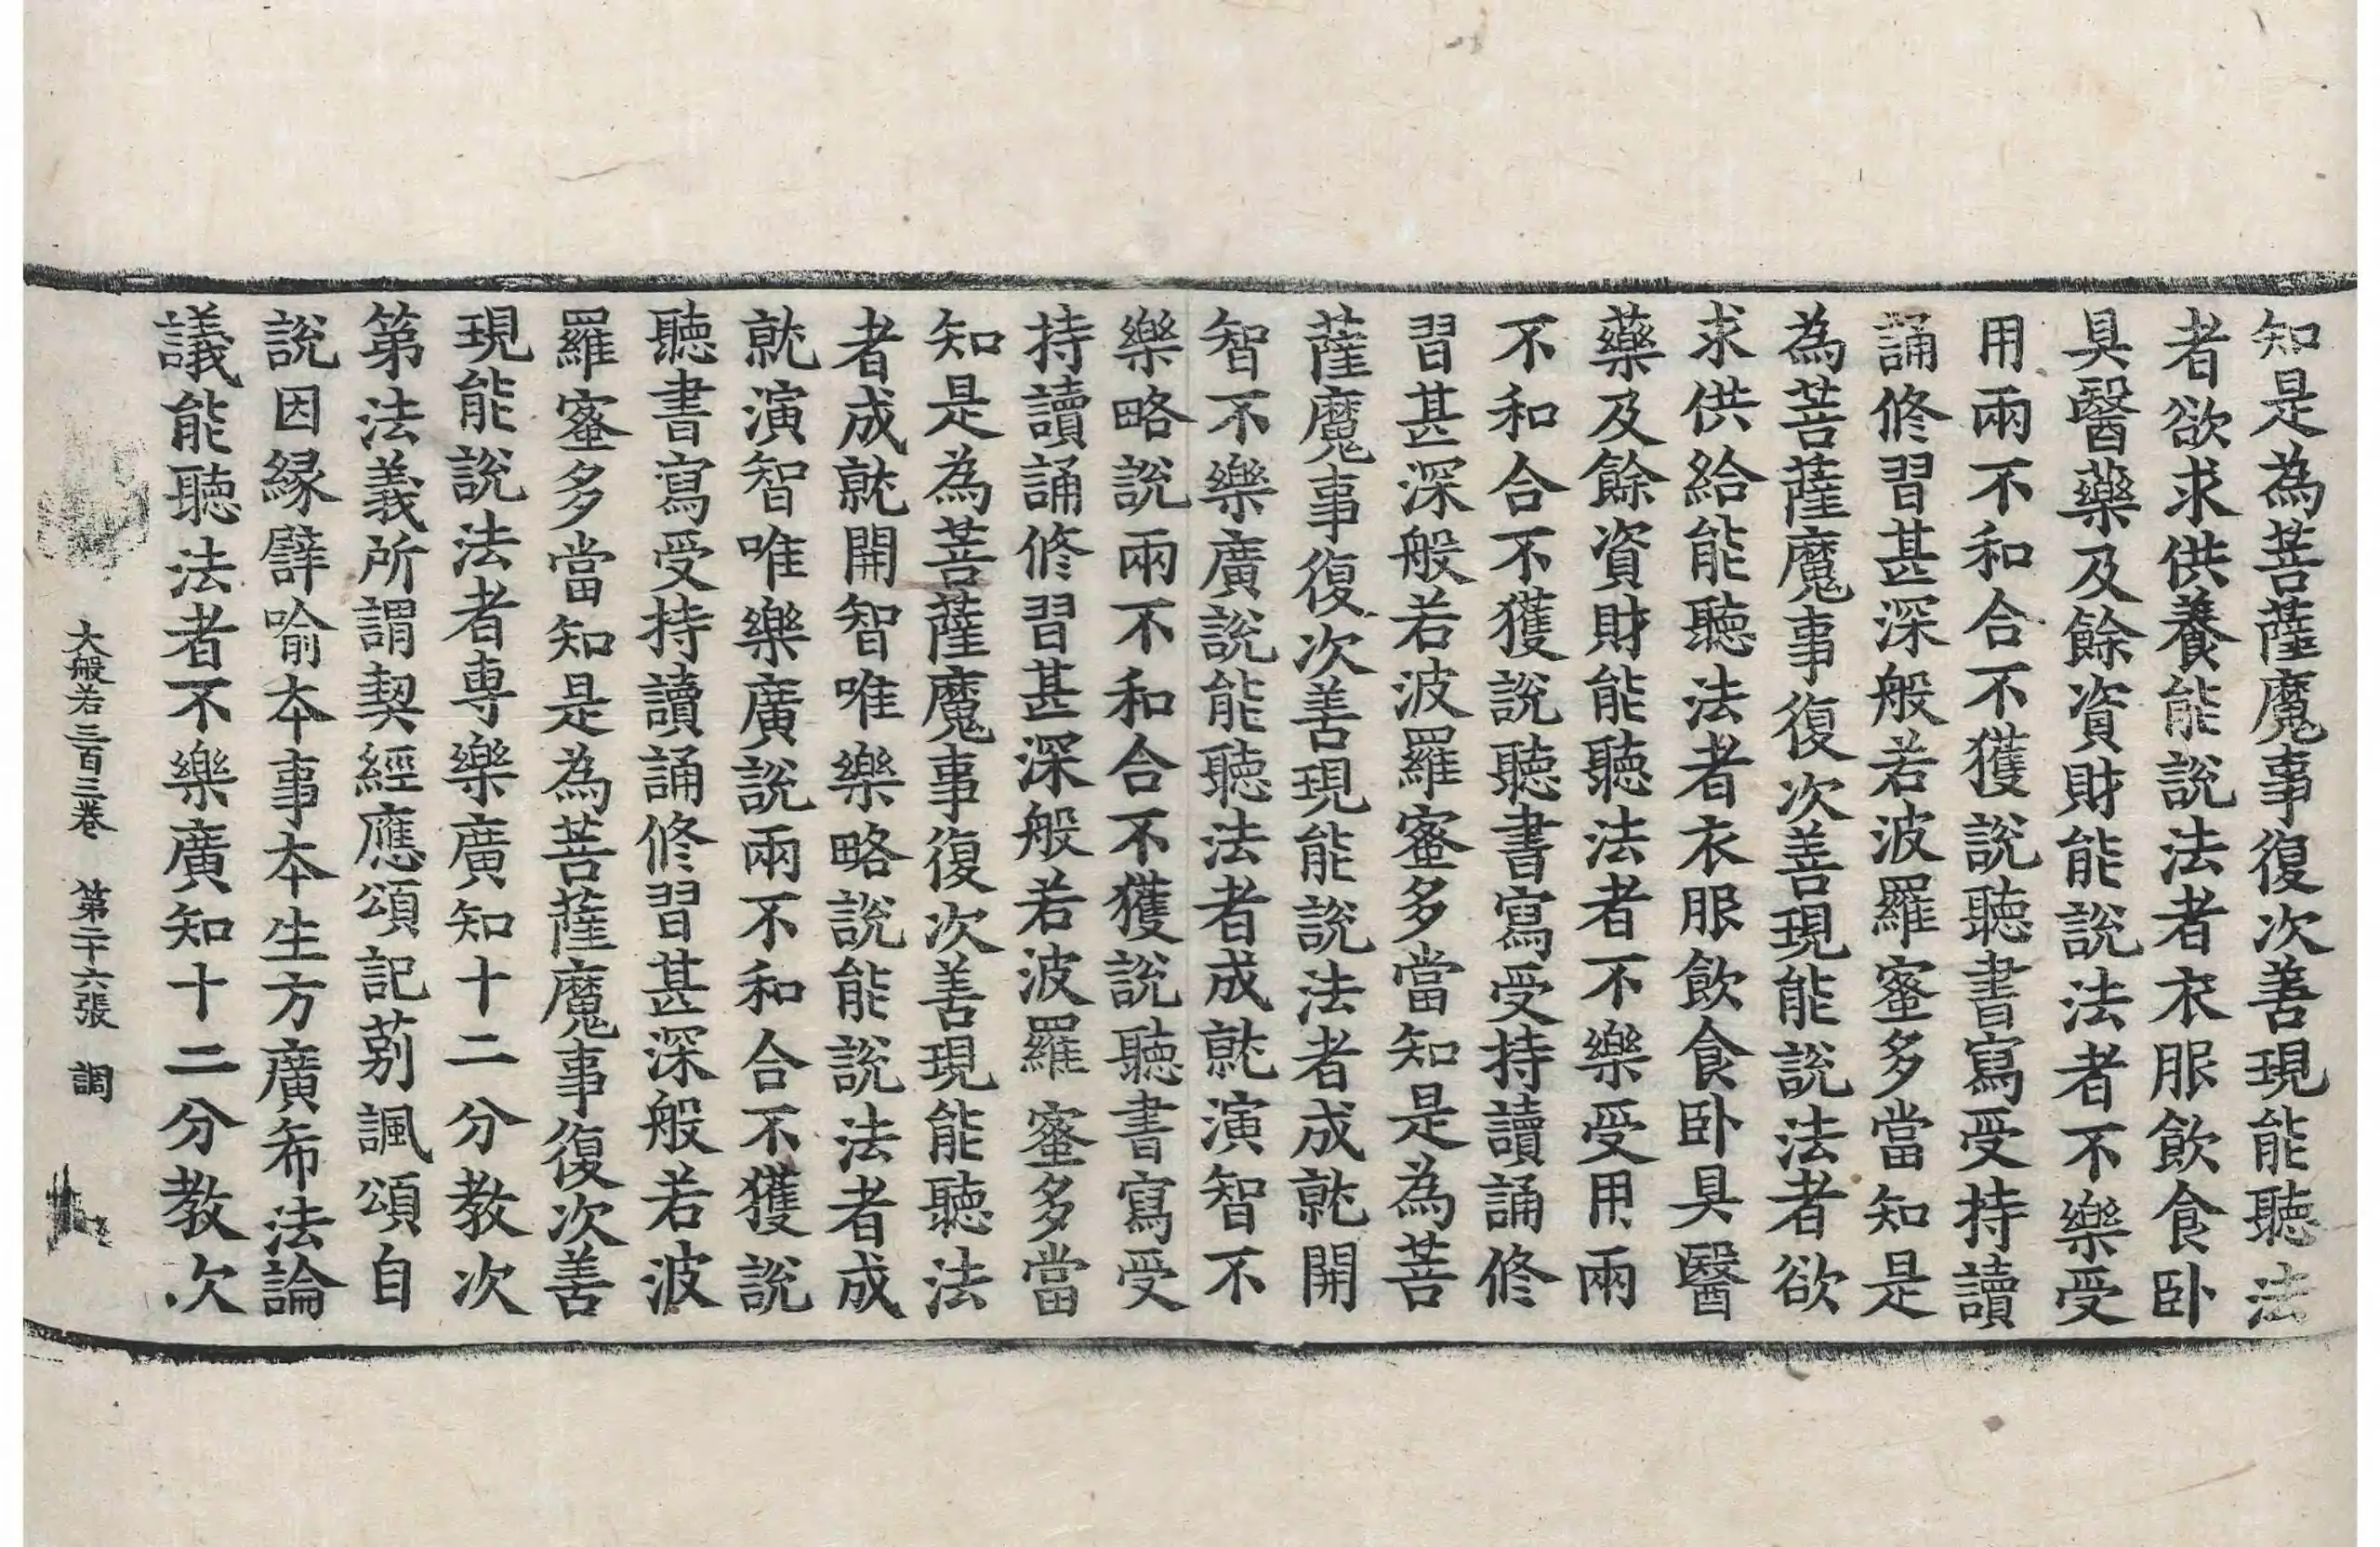 知是為菩薩魔事復次善現能聽法
者欲求供養能說法者衣服飲食卧
具醫藥及餘資財能說法者不樂受
用兩不和合不獲說聽書寫受持讀
誦修習甚深般若波羅蜜多當知是
為菩薩魔事復次善現能說法者欲
求供給能聽法者衣服飲食卧具醫
藥及餘資財能聽法者不樂受用兩
不和合不獲說聽書寫受持讀誦修
習甚深般若波羅蜜多當知是為菩
薩魔事復次善現能說法者成就開
智不樂廣說能聽法者成就演智不
樂略說兩不和合不獲說聽書寫受
持讀誦修習甚深般若波羅蜜多當
知是為菩薩魔事復次善現能聽法
者成就開智唯樂略說能說法者成
就演智唯樂廣說兩不和合不獲說
聽書寫受持讀誦修習甚深般若波
羅蜜多當知是為菩薩魔事復次善
現能說法者專樂廣知十二分教次
第法義所謂契經應頌記莂諷頌自
說因緣譬喻本事本生方廣希法論
議能聽法者不樂廣知十二分教次
大般若三百三卷 第二十六張 調